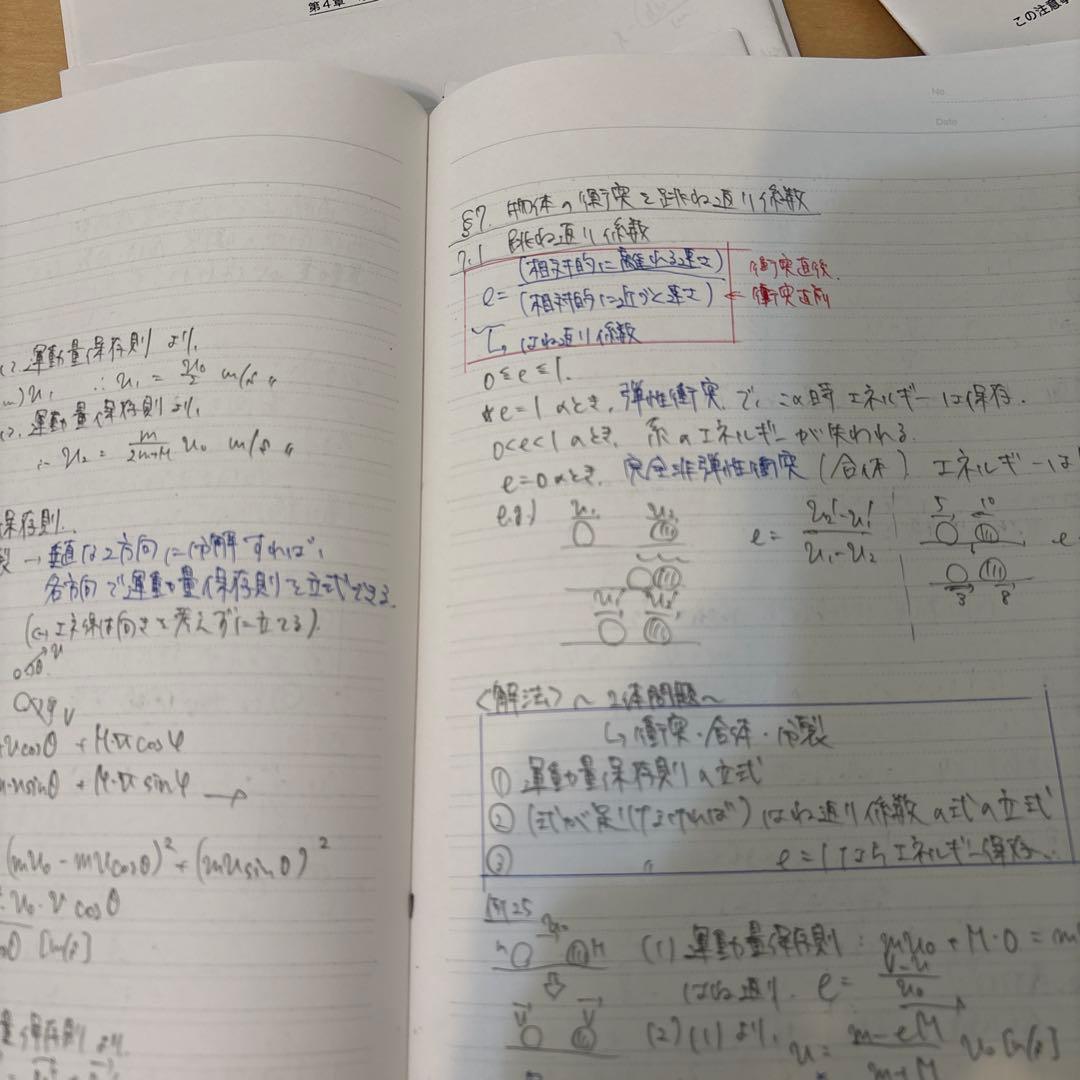 第4章
この注意
No.
Date
運動量保存則より,
)u₁ ∴ u₁ = u₀/2 m/s 〃
運動量保存則より,
∴ u₂ = m/(2m+M) u₀ m/s 〃
保存則.
裂 → 垂直な2方向に分解すれば,
各方向で運動量保存則を立式できる.
(↔ エネ保は向きを考えずに立てる).
vcosθ + M·v cosφ
m·usinθ + M·v sinφ →
(mu₀ - mucosθ)² + (musinθ)²
u₀·v cosθ
[m/s]
量保存則より.
§7. 物体の衝突と跳ね返り係数
7.1 跳ね返り係数
e = (相対的に離れる速さ)/(相対的に近づく速さ)
衝突直後.
← 衝突直前
↳ はね返り係数
0 ≤ e ≤ 1.
* e = 1 のとき, 弾性衝突 で, この時 エネルギーは保存.
0 < e < 1 のとき, 系のエネルギーが失われる.
e = 0 のとき, 完全非弾性衝突 (合体) エネルギーは
e.g.) u₁ u₂ e = (u₂' - u₁')/(u₁ - u₂) 5 10 e
u₁' u₂' 3 8
<解法> ~ 2体問題 ~
↳ 衝突・合体・分裂
① 運動量保存則の立式
② (式が足りなければ) はね返り係数の式の立式
③ 〃 e = 1 ならエネルギー保存.
例25
u₀ m M (1) 運動量保存則 : mu₀ + M·0 = m
はね返り. e = (V-u)/u₀
(2) (1) より, u = (m-eM)/(m+M) u₀ [m/s]